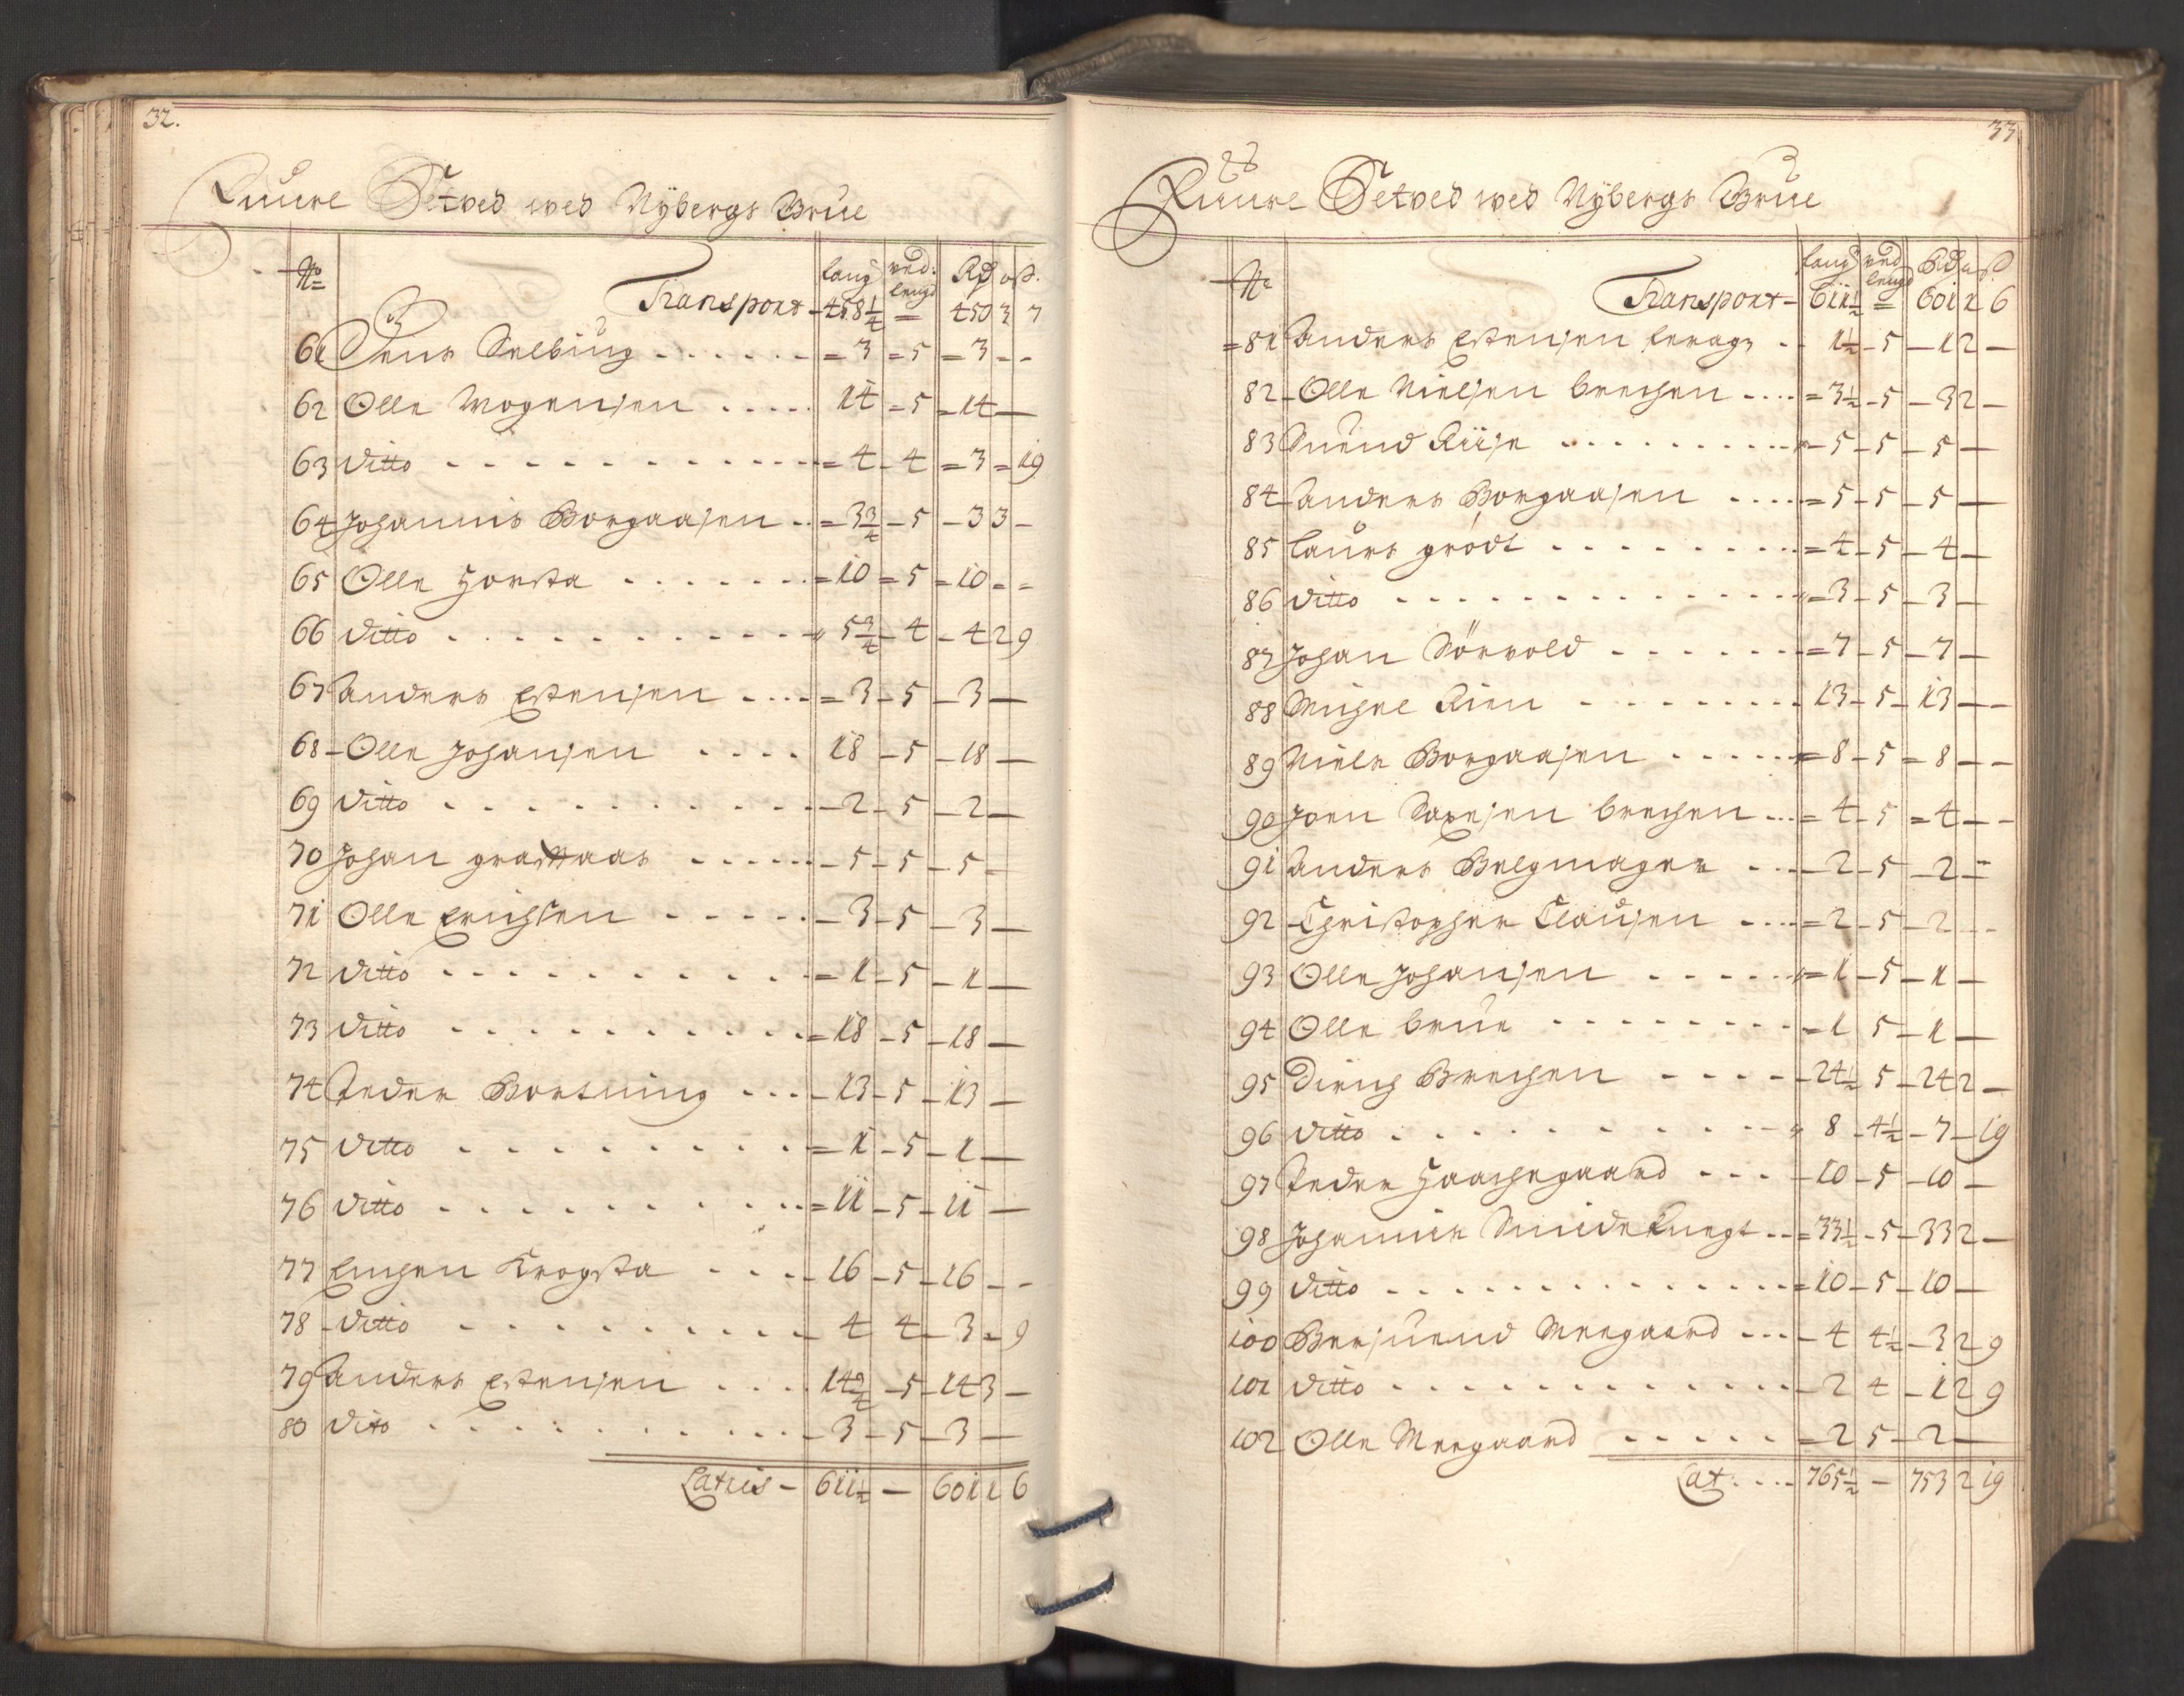 32.
Ruure Setved wed Nÿbergs Brue
No Transport - lang 458 1/4 ved: lengd = Rd 450 ort 3 ß. 7
61 Jens Selbüug ...... = 3 = 5 = 3 - -
62 Olle Mogensen ..... 14 - 5 = 14 —
63 ditto - - - - = 4 - 4 = 3 = 19
64 Johannis Borgaasen .. = 3 3/4 - 5 - 3 3 -
65 Olle Horsta ...... = 10 = 5 = 10 = -
66 ditto - - - - " 5 3/4 - 4 - 4 2 9
67 Anders Estensen .... = 3 - 5 - 3 —
68 - Olle Johansen .... 18 - 5 - 18 —
69 ditto - - - - - 2 - 5 - 2 —
70 Johan graaes ..... - 5 - 5 - 5 -
71 Olle Erichsen ..... - 3 - 5 - 3 —
72 ditto - - - - = 1 - 5 - 1 —
73 ditto - - - - = 18 - 5 - 18 —
74 Peder Bortning ... - 13 - 5 - 13 —
75 ditto - - - - = 1 - 5 - 1 —
76 ditto - - - - = 11 - 5 - 11 —
77 Engen Krogsta .... 16 - 5 - 16 - -
78 - ditto - - - - 4 4 - 3 - 9
79 Anders Estensen .... 14 3/4 - 5 - 14 3 —
80 dito - - - - - 3 - 5 - 3 —
Latus - 611 1/2 — 601 1 6
33
Ruure Setved wed Nÿbergs Brue
No Transport - lang 611 1/2 ved lengd = Rd 601 ort 1 ß 6
= 81 Anders Estensen .. 1 1/2 - 5 - 1 2 —
82 - Olle Nielsen brechen .... = 3 1/2 - 5 - 3 2 —
83 Suend Riise ..... = 5 - 5 - 5 —
84 Anders Borgaasen .... = 5 - 5 - 5 —
85 Laurs grödt ..... = 4 - 5 - 4 —
86 ditto - - - - " = 3 - 5 - 3 —
87 Johan Sörvold ...... = 7 - 5 - 7 —
88 Michel Rien ...... 13 - 5 - 13 — -
89 Niels Borgaasen ..... = 8 - 5 = 8 — -
90 Joen Saxesen brechen ... = 4 - 5 = 4 — -
91 Anders Belgmager ... - 2 - 5 - 2 - =
92 - Christopher Clausen .... = 2 - 5 - 2 - -
93 Olle Johansen ..... " = 1 - 5 - 1 —
94 Olle brue ....... - 1 5 - 1 —
95 Dirich Brechen .... - 24 1/2 5 - 24 2 —
96 ditto - - - - " 8 - 4 1/2 - 7 - 19
97 Peder Haachegaard ... - 10 - 5 - 10 —
98 Johannis Smideknegt .. = 33 1/2 - 5 - 33 2 —
99 ditto - - - - = 10 - 5 - 10 —
100 Bersuend Moegaard ... - 4 4 1/2 - 3 2 9
101 ditto - - - - - 2 4 - 1 2 9
102 Olle Moegaard ..... = 2 5 - 2 —
Lat: .... 765 1/2 — 753 2 19